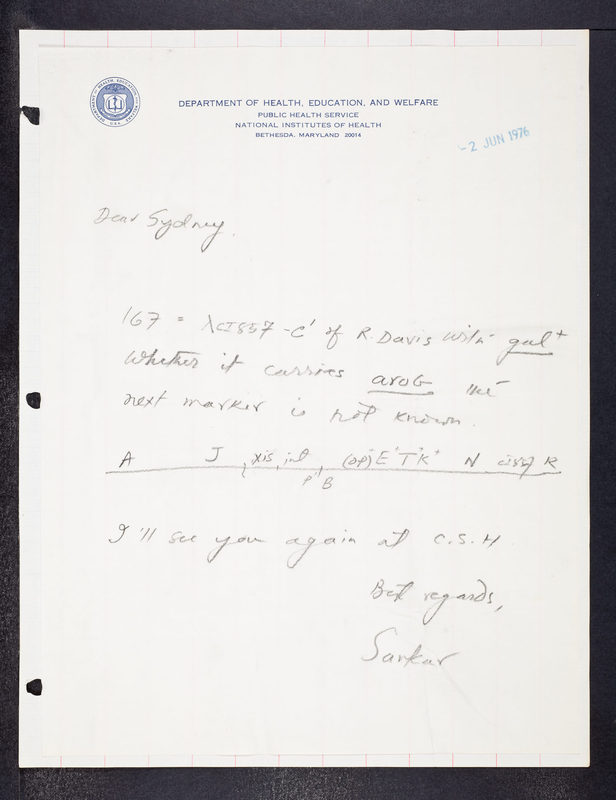 DEPARTMENT OF HEALTH, EDUCATION, AND WELFARE
PUBLIC HEALTH SERVICE
NATIONAL INSTITUTES OF HEALTH
BETHESDA, MARYLAND 20014
-2 JUN 1976
Dear Sydney,
167 = λcI857-C' of R. Davis with gal+
Whether it carries aroG the
next marker is not known.
A J xis, int, E+T+K+ N cI857 R
P' B
I'll see you again at C.S.H.
Best regards,
Sankar